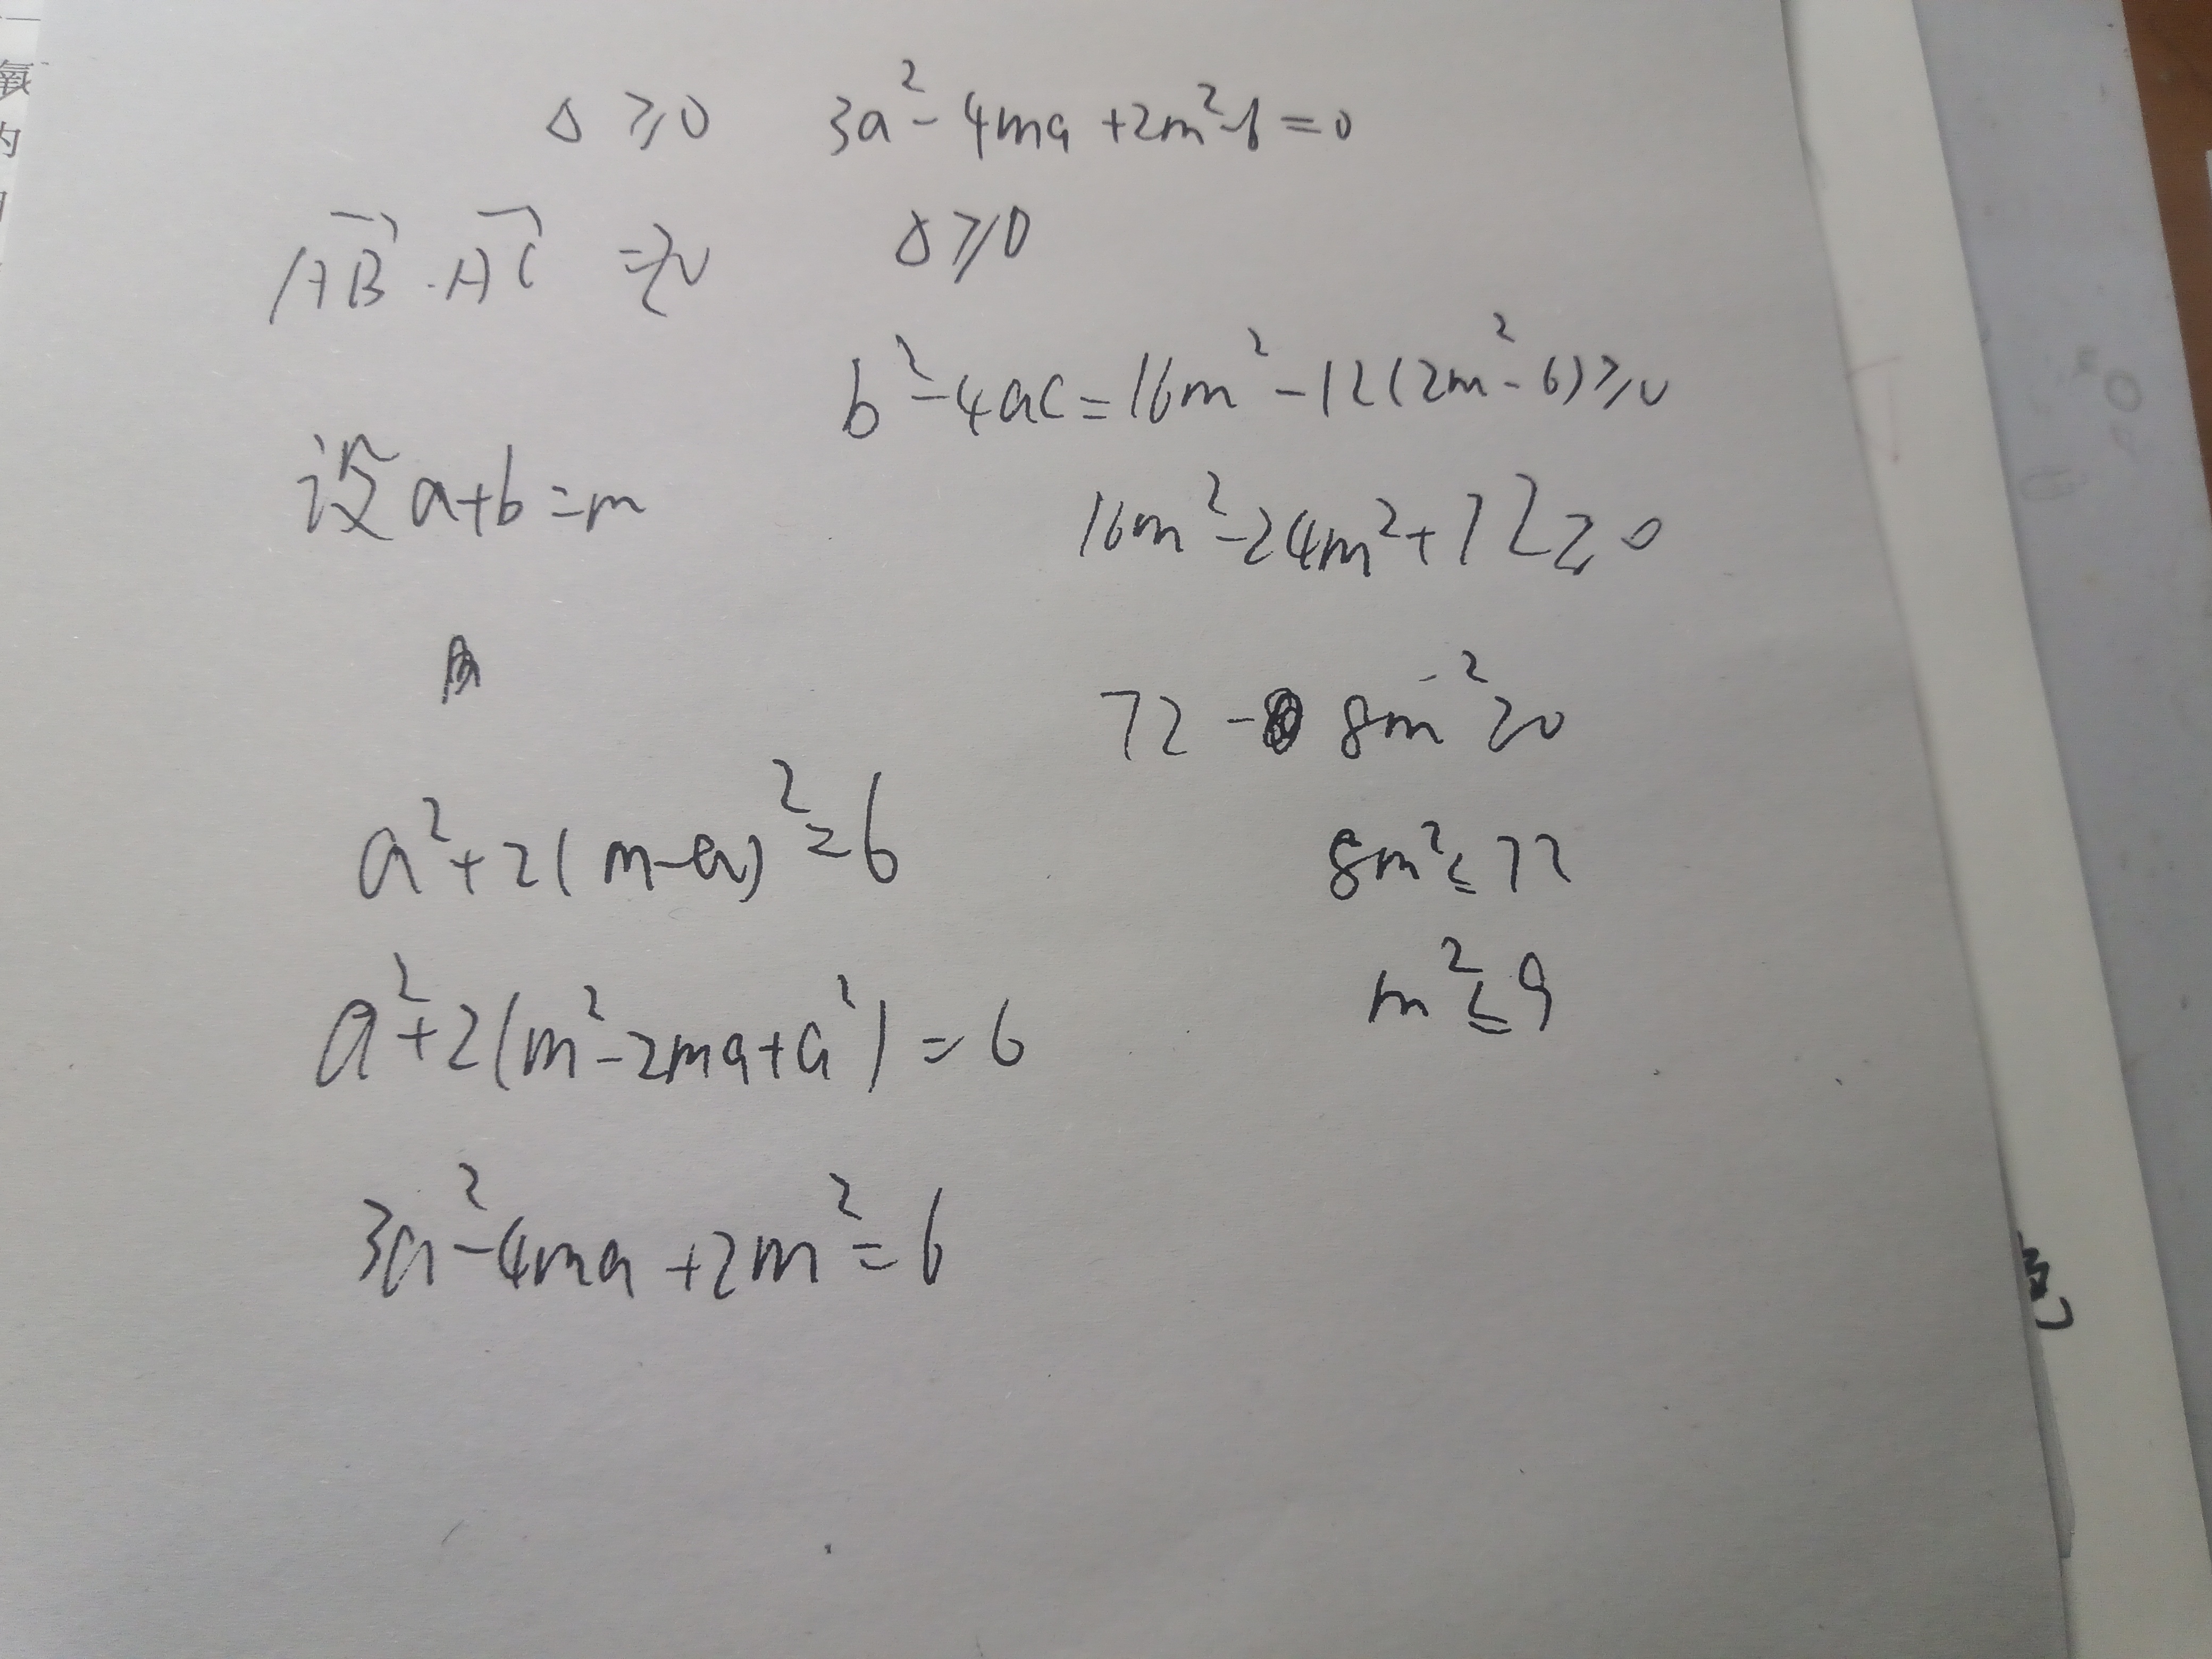 氧
内
Δ ≥ 0
3a² - 4ma + 2m² - 6 = 0
AB · AC =
Δ ≥ 0
b² - 4ac = 16m² - 12(2m² - 6) ≥ 0
设 a + b = m
16m² - 24m² + 72 ≥ 0
72 - 8m² ≥ 0
a² + 2(m - a)² = 6
8m² ≤ 72
a² + 2(m² - 2ma + a²) = 6
m² ≤ 9
3a² - 4ma + 2m² = 6